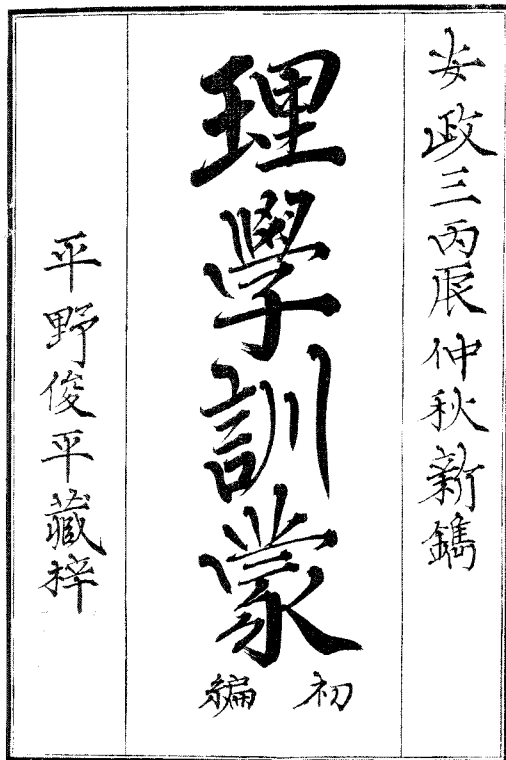 安政三丙辰仲秋新鐫
理學訓蒙
初編
平野俊平藏梓